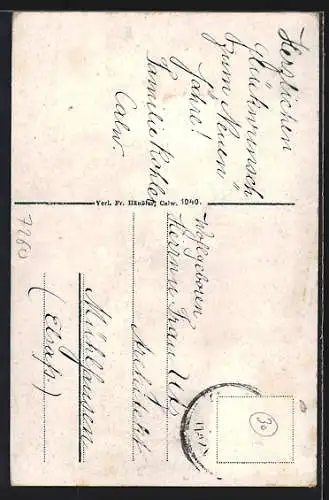 Herzlichen
Glückwunsch
zum Neuen
Jahr!
Familie Kohler
Calw.
Verl. Fr. Häußler, Calw. 1040.
Wohlgeboren
Herrn Frau
Mühlhausen
(Elsaß.)
7260
30